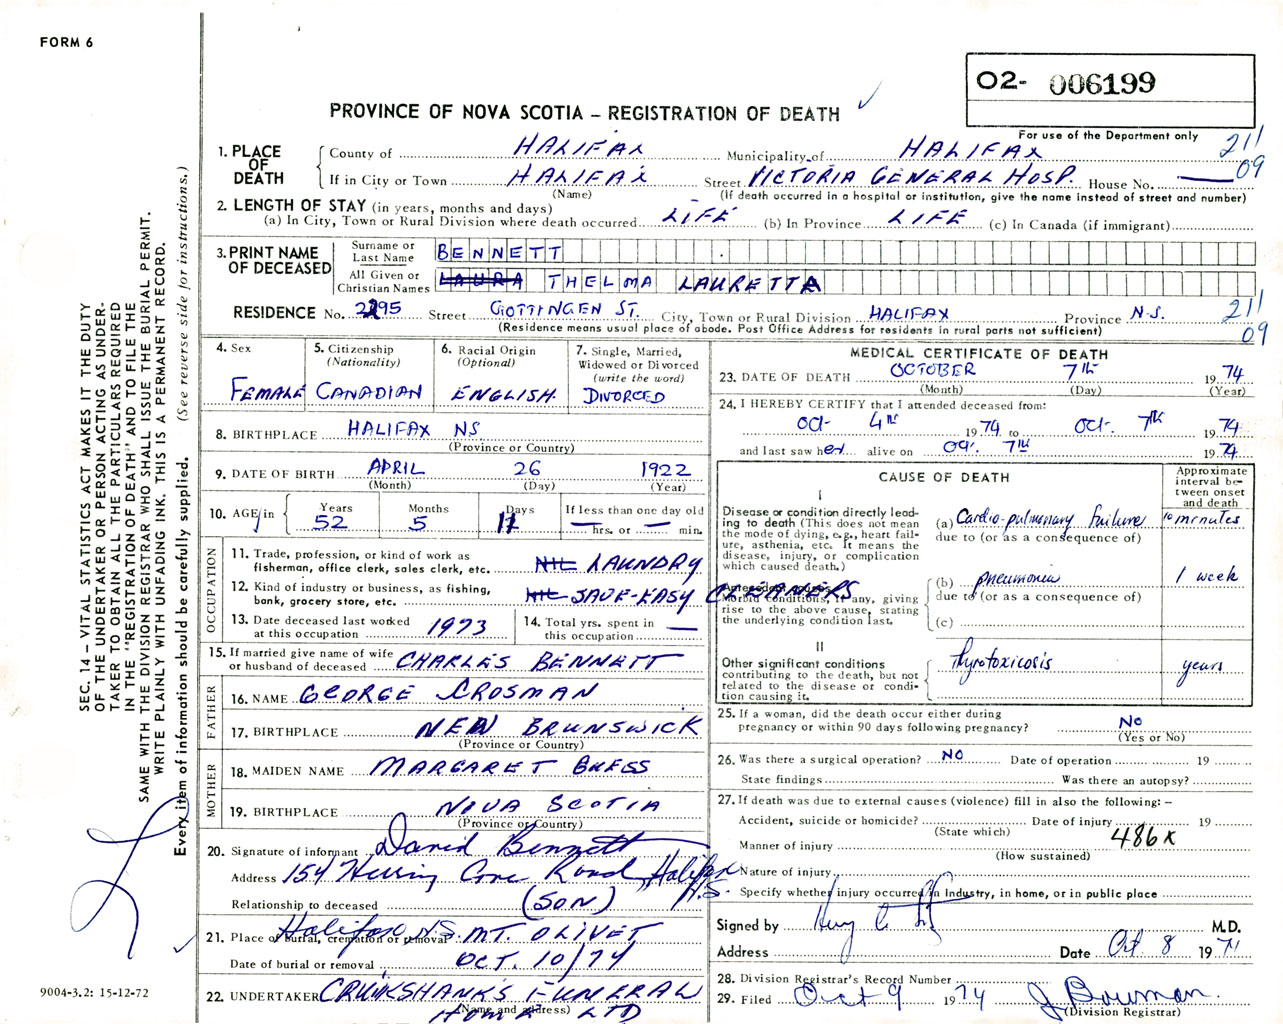 FORM 6
02- 006199
PROVINCE OF NOVA SCOTIA – REGISTRATION OF DEATH
For use of the Department only
211
09
1. PLACE OF DEATH
County of HALIFAX Municipality of HALIFAX
If in City or Town HALIFAX Street VICTORIA GENERAL HOSP. House No. —
(Name) (If death occurred in a hospital or institution, give the name instead of street and number)
2. LENGTH OF STAY (in years, months and days)
(a) In City, Town or Rural Division where death occurred LIFE (b) In Province LIFE (c) In Canada (if immigrant)
3. PRINT NAME OF DECEASED
Surname or Last Name BENNETT
All Given or Christian Names LAURA THELMA LAURETTA
RESIDENCE No. 2295 Street GOTTINGEN ST. City, Town or Rural Division HALIFAX Province N.S.
211
09
(Residence means usual place of abode. Post Office Address for residents in rural parts not sufficient)
4. Sex
FEMALE
5. Citizenship
(Nationality)
CANADIAN
6. Racial Origin
(Optional)
ENGLISH
7. Single, Married,
Widowed or Divorced
(write the word)
DIVORCED
8. BIRTHPLACE HALIFAX NS
(Province or Country)
9. DATE OF BIRTH APRIL 26 1922
(Month) (Day) (Year)
10. AGE in
Years 52
Months 5
Days 11
If less than one day old
— hrs. or — min.
OCCUPATION
11. Trade, profession, or kind of work as
fisherman, office clerk, sales clerk, etc. NIL LAUNDRY
12. Kind of industry or business, as fishing,
bank, grocery store, etc. NIL SAVE-EASY CLEANERS
13. Date deceased last worked
at this occupation 1973
14. Total yrs. spent in
this occupation —
15. If married give name of wife
or husband of deceased CHARLES BENNETT
FATHER
16. NAME GEORGE CROSMAN
17. BIRTHPLACE NEW BRUNSWICK
(Province or Country)
MOTHER
18. MAIDEN NAME MARGARET
19. BIRTHPLACE NOVA SCOTIA
(Province or Country)
20. Signature of informant David Bennett
Address 154 Herring Cove Road, Halifax N.S.
Relationship to deceased (SON)
21. Place of burial, cremation or removal Halifax N.S. MT. OLIVET
Date of burial or removal OCT. 10/74
22. UNDERTAKER CRUIKSHANKS FUNERAL
HOME LTD
(Name and address)
MEDICAL CERTIFICATE OF DEATH
23. DATE OF DEATH OCTOBER 7th 1974
(Month) (Day) (Year)
24. I HEREBY CERTIFY that I attended deceased from:
Oct 4th 1974 to Oct. 7th 1974
and last saw her alive on Oct. 7th 1974
CAUSE OF DEATH
Approximate interval between onset and death
I
Disease or condition directly leading to death (This does not mean the mode of dying, e.g., heart failure, asthenia, etc. It means the disease, injury, or complication which caused death.)
(a) Cardio-pulmonary failure 10 minutes
due to (or as a consequence of)
Antecedent causes
Morbid conditions, if any, giving rise to the above cause, stating the underlying condition last.
(b) pneumonia 1 week
due to (or as a consequence of)
(c)
II
Other significant conditions contributing to the death, but not related to the disease or condition causing it.
Thyrotoxicosis years
25. If a woman, did the death occur either during
pregnancy or within 90 days following pregnancy? No
(Yes or No)
26. Was there a surgical operation? NO Date of operation 19
State findings Was there an autopsy?
27. If death was due to external causes (violence) fill in also the following: –
Accident, suicide or homicide? Date of injury 19
(State which) 486X
Manner of injury
(How sustained)
Nature of injury
Specify whether injury occurred in Industry, in home, or in public place
Signed by M.D.
Address Date Oct 8 1974
28. Division Registrar's Record Number
29. Filed Oct 9 1974 J Bowman
(Division Registrar)
SEC. 14 – VITAL STATISTICS ACT MAKES IT THE DUTY
OF THE UNDERTAKER OR PERSON ACTING AS UNDER-
TAKER TO OBTAIN ALL THE PARTICULARS REQUIRED
IN THE "REGISTRATION OF DEATH" AND TO FILE THE
SAME WITH THE DIVISION REGISTRAR WHO SHALL ISSUE THE BURIAL PERMIT.
WRITE PLAINLY WITH UNFADING INK. THIS IS A PERMANENT RECORD.
Every item of information should be carefully supplied. (See reverse side for instructions.)
9004-3.2: 15-12-72